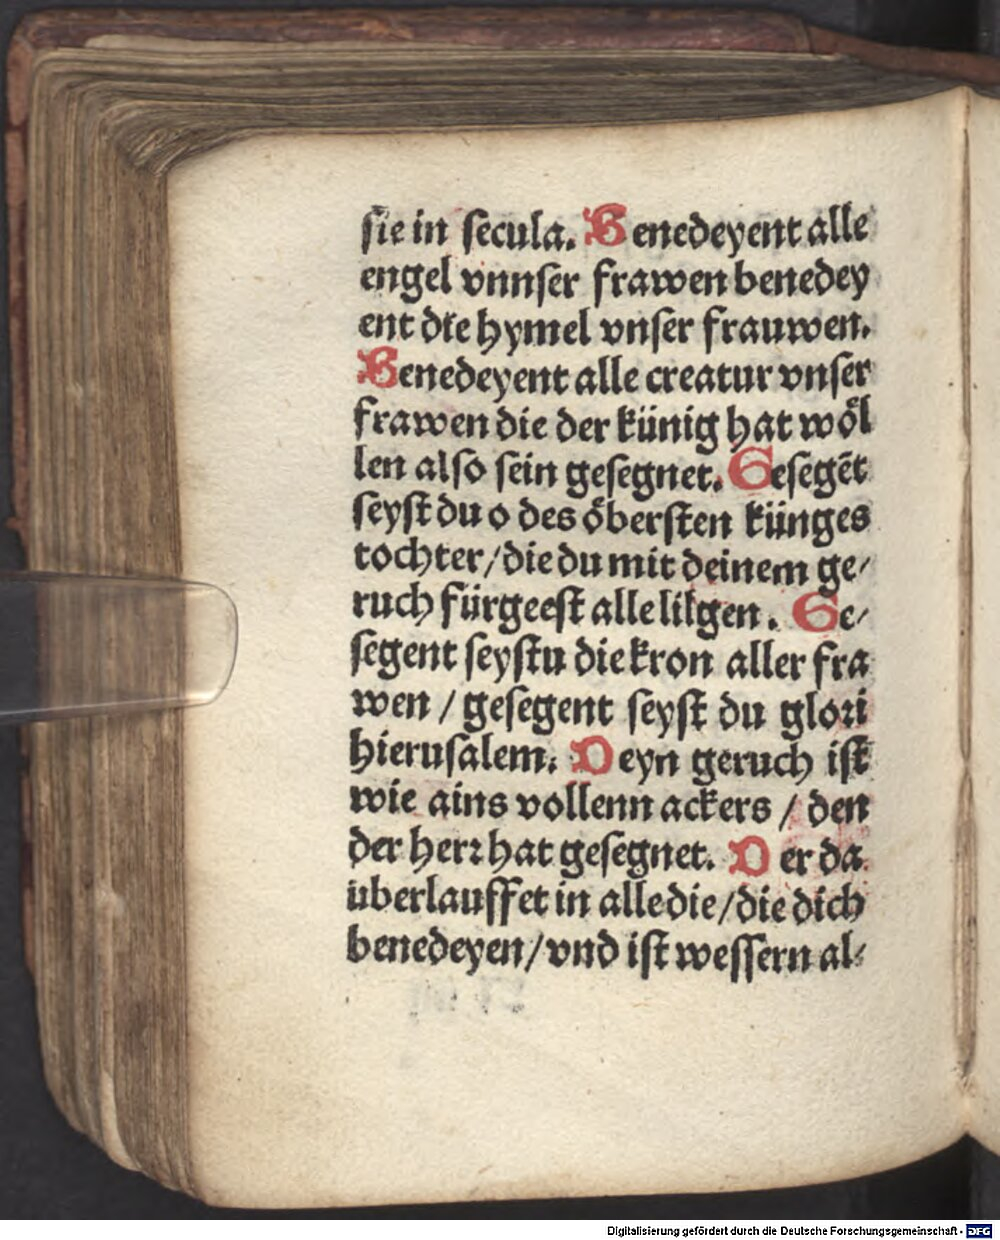 sie in secula. Benedeyent alle
engel vnnser frawen benedey
ent die hymel vnser frauwen.
Benedeyent alle creatur vnser
frawen die der künig hat wöl
len also sein gesegnet. Gesegēt
seyst du o des öbersten künges
tochter/die du mit deinem ge/
ruch fürgeest alle lilgen. Ge/
segent seystu die kron aller fra
wen / gesegent seyst du glori
hierusalem. Deyn geruch ist
wie ains vollenn ackers / den
der herr hat gesegnet. Der da
überlauffet in alle die/die dich
benedeyen/vnd ist wessern al/
Digitalisierung gefördert durch die Deutsche Forschungsgemeinschaft - DFG